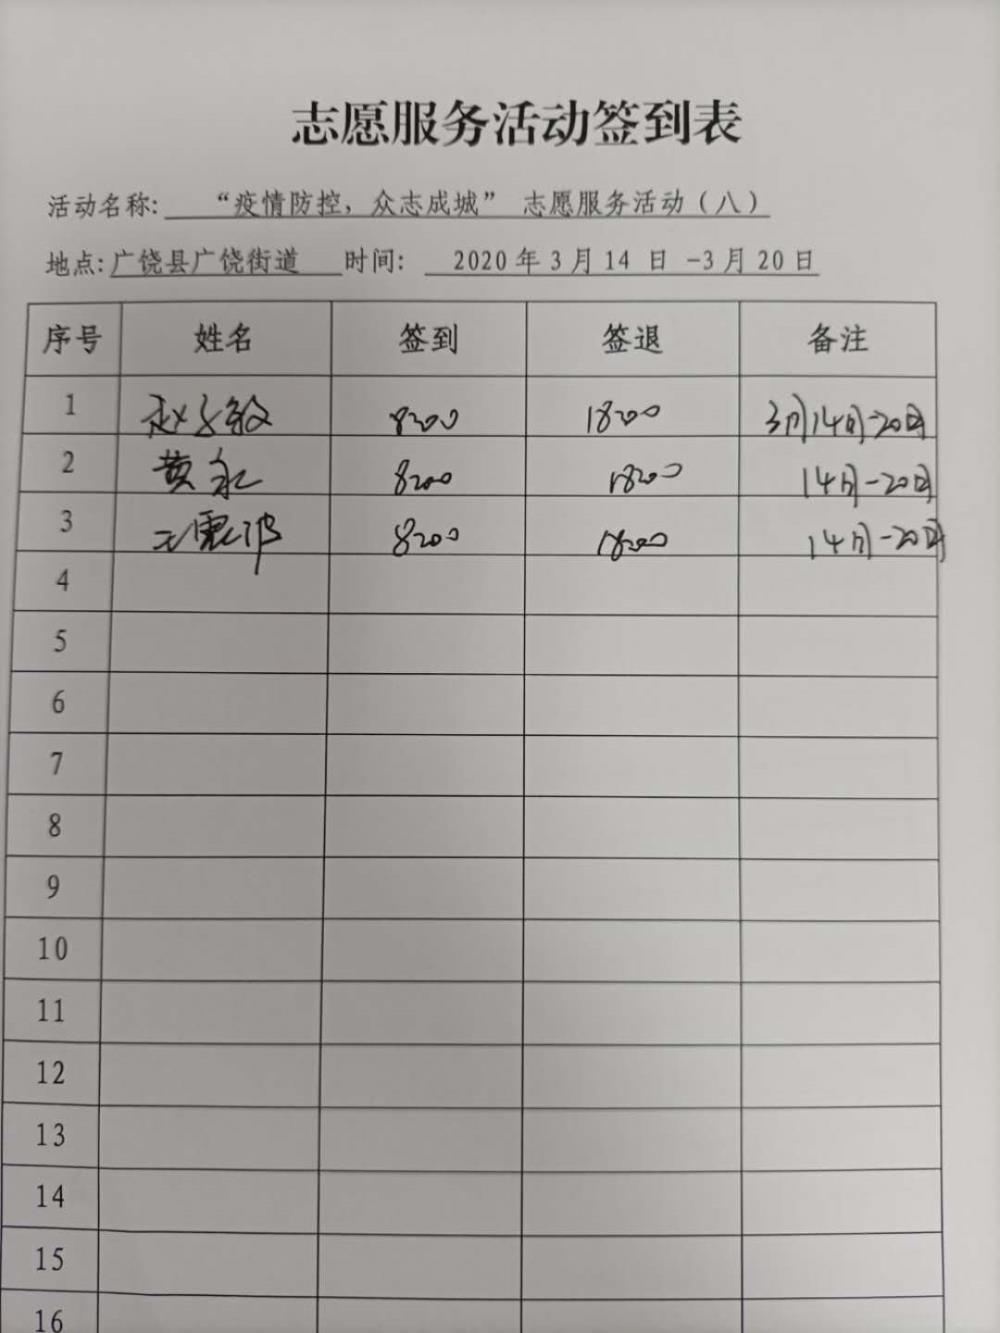 志愿服务活动签到表
活动名称: “疫情防控，众志成城” 志愿服务活动（八）
地点: 广饶县广饶街道 时间: 2020 年 3 月 14 日 -3 月 20 日
序号 姓名 签到 签退 备注
1 赵子敏 8:00 18:00 3月14日-20日
2 黄永 8:00 18:00 14日-20日
3 王 8:00 18:00 14日-20日
4
5
6
7
8
9
10
11
12
13
14
15
16